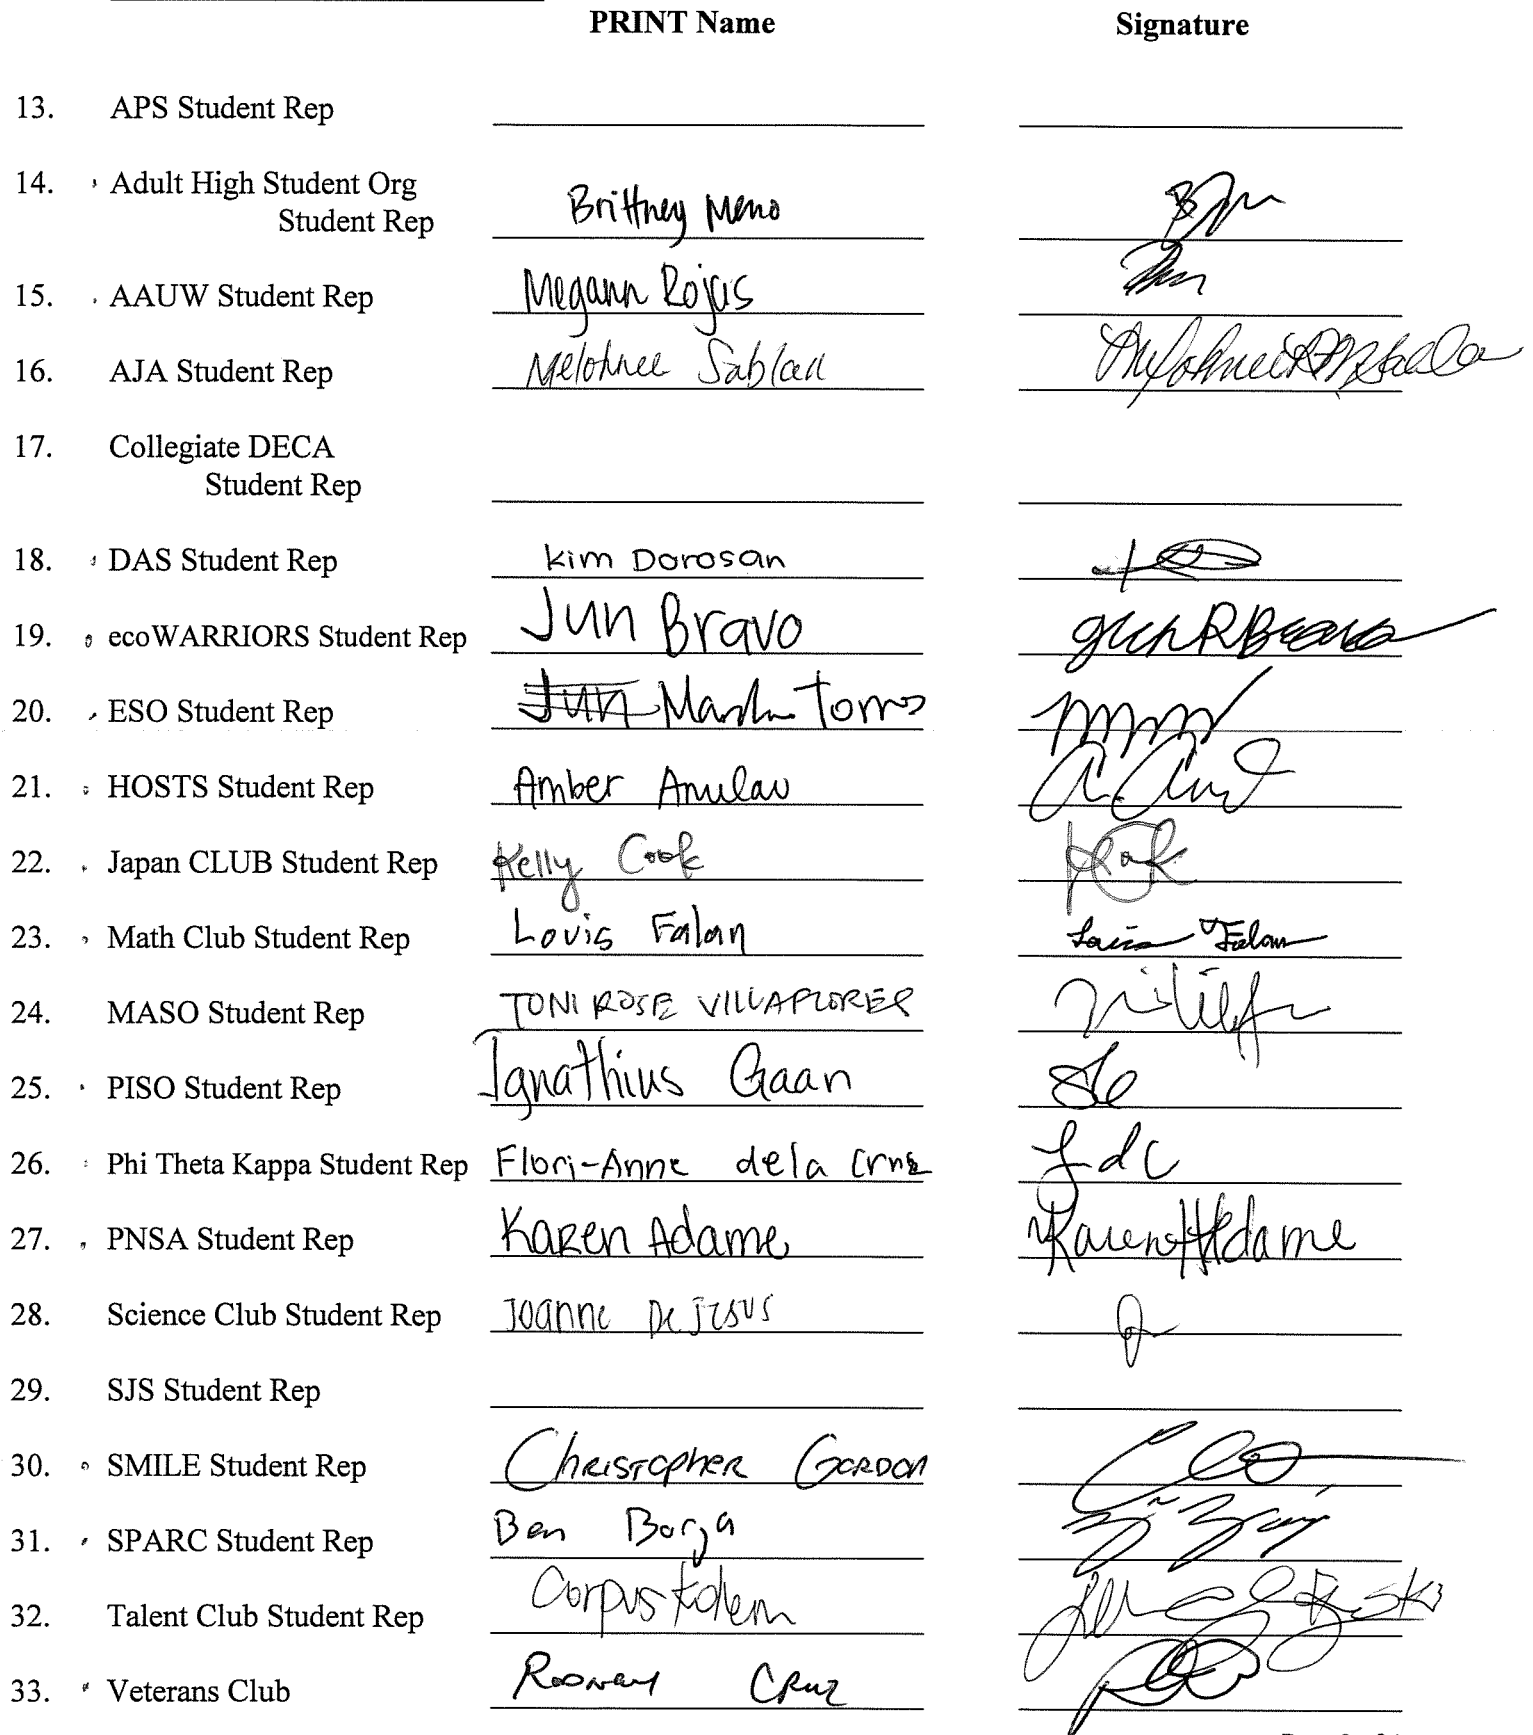 PRINT Name Signature
13. APS Student Rep
14. Adult High Student Org
Student Rep Brittney Meno
15. AAUW Student Rep Megann Rojas
16. AJA Student Rep Melohnee Sablan
17. Collegiate DECA
Student Rep
18. DAS Student Rep Kim Dorosan
19. ecoWARRIORS Student Rep Jun Bravo
20. ESO Student Rep Jun
21. HOSTS Student Rep Amber Anulao
22. Japan CLUB Student Rep Kelly Cook
23. Math Club Student Rep Louis Falan Louis Falan
24. MASO Student Rep TONI ROSE VILLAFLORES
25. PISO Student Rep Ignathius Gaan
26. Phi Theta Kappa Student Rep Flori-Anne dela Cruz FdC
27. PNSA Student Rep Karen Adame Karen H Adame
28. Science Club Student Rep Joanne De Jesus
29. SJS Student Rep
30. SMILE Student Rep Christopher Gordon
31. SPARC Student Rep Ben Borja
32. Talent Club Student Rep Corpus
33. Veterans Club Rodney Cruz